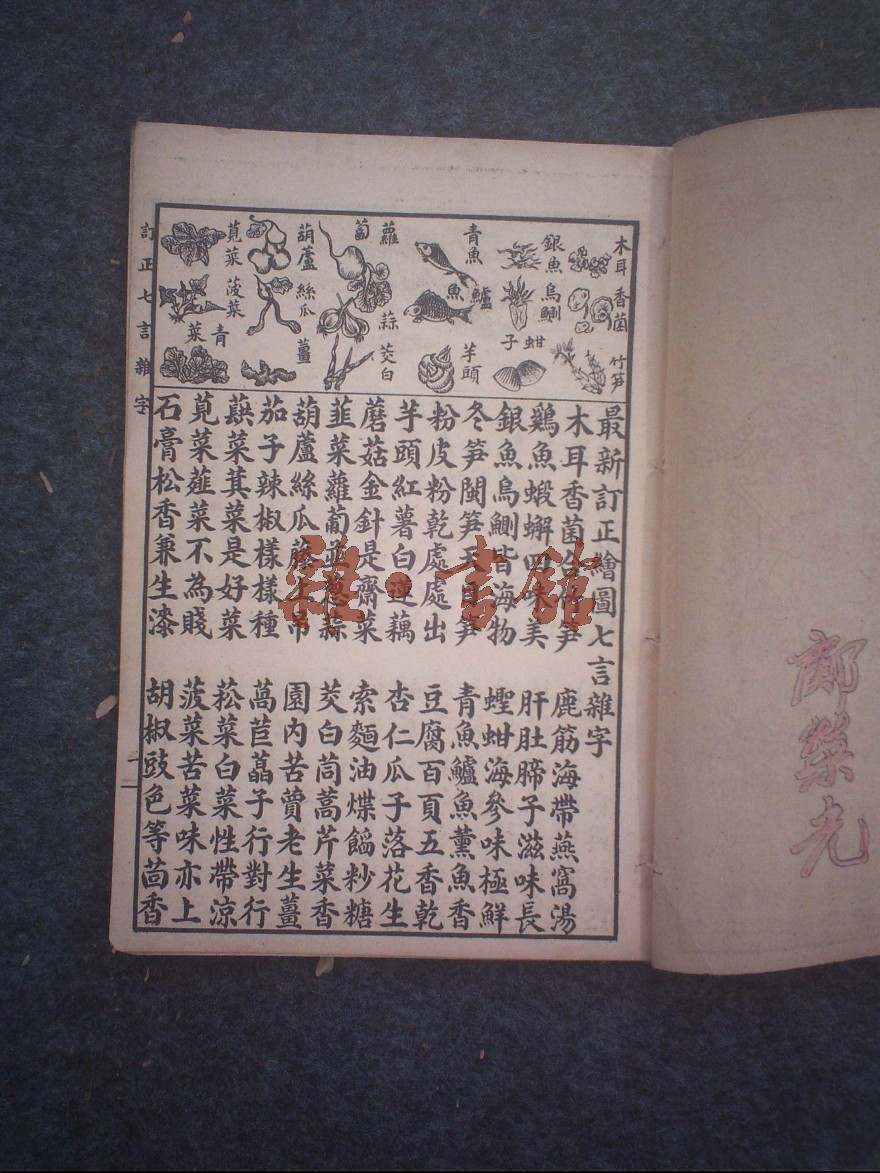 木耳 香菌 竹笋
銀魚 烏鰂 蚶子
青魚 鱸魚 芋頭
蘿蔔 蒜 茭白
葫蘆 絲瓜 薑
莧菜 菠菜 青菜
訂正七言雜字
最新訂正繪圖七言雜字
木耳香菌合竹笋 鹿筋海帶燕窩湯
鷄魚蝦蠏四味美 肝肚蹄子滋味長
銀魚烏鰂皆海物 蟶蚶海參味極鮮
冬笋閩笋玉笋 青魚鱸魚薰魚香
粉皮粉乾處處出 豆腐百頁五香乾
芋頭紅薯白蓮藕 杏仁瓜子落花生
蘑菇金針是齋菜 索麵油煠餡粆糖
韭菜蘿蔔並葱蒜 茭白茼蒿芹菜香
葫蘆絲瓜上吊 園內苦蕒老生薑
茄子辣椒樣樣種 萵苣藠子行對行
蕻菜萁菜是好菜 菘菜白菜性帶涼
莧菜薤菜不為賤 菠菜苦菜味亦上
石膏松香兼生漆 胡椒豉色等茴香
雜·書館
鄺榮光